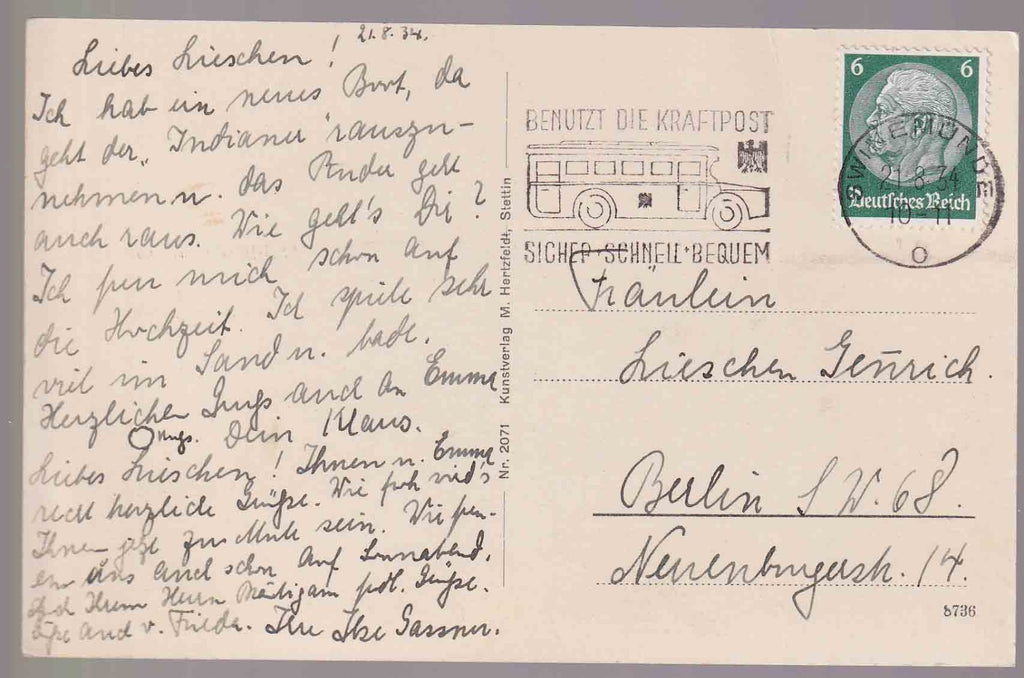 21.8.34.
Liebes Lieschen!
Ich hab ein neues Boot, da
geht der „Indianer" rauszu-
nehmen u. das Ruder geht
auch raus. Wie geht's Dir?
Ich freu mich schon auf
die Hochzeit. Ich spiele sehr
viel im Sand u. bade.
Herzlichen Gruß auch an Emma
Dein Klaus.
Kuss.
Liebes Lieschen! Ihnen u. Emma
recht herzliche Grüße. Wie froh wird's
Ihnen jetzt zu Mute sein. Wir freu-
en uns auch schon auf Sonnabend.
Ihrem Herrn Bräutigam frdl. Grüße.
auch v. Frieda. Ihre Ilse Gassner.
Nr. 2071 Kunstverlag M. Hertzfeldt, Stettin
BENUTZT DIE KRAFTPOST
SICHER·SCHNELL·BEQUEM
6 6
Deutsches Reich
SWINEMÜNDE
21.8.34
10-11
o
Fräulein
Lieschen
Berlin S W. 68.
Neuenburgerstr. 14.
8736